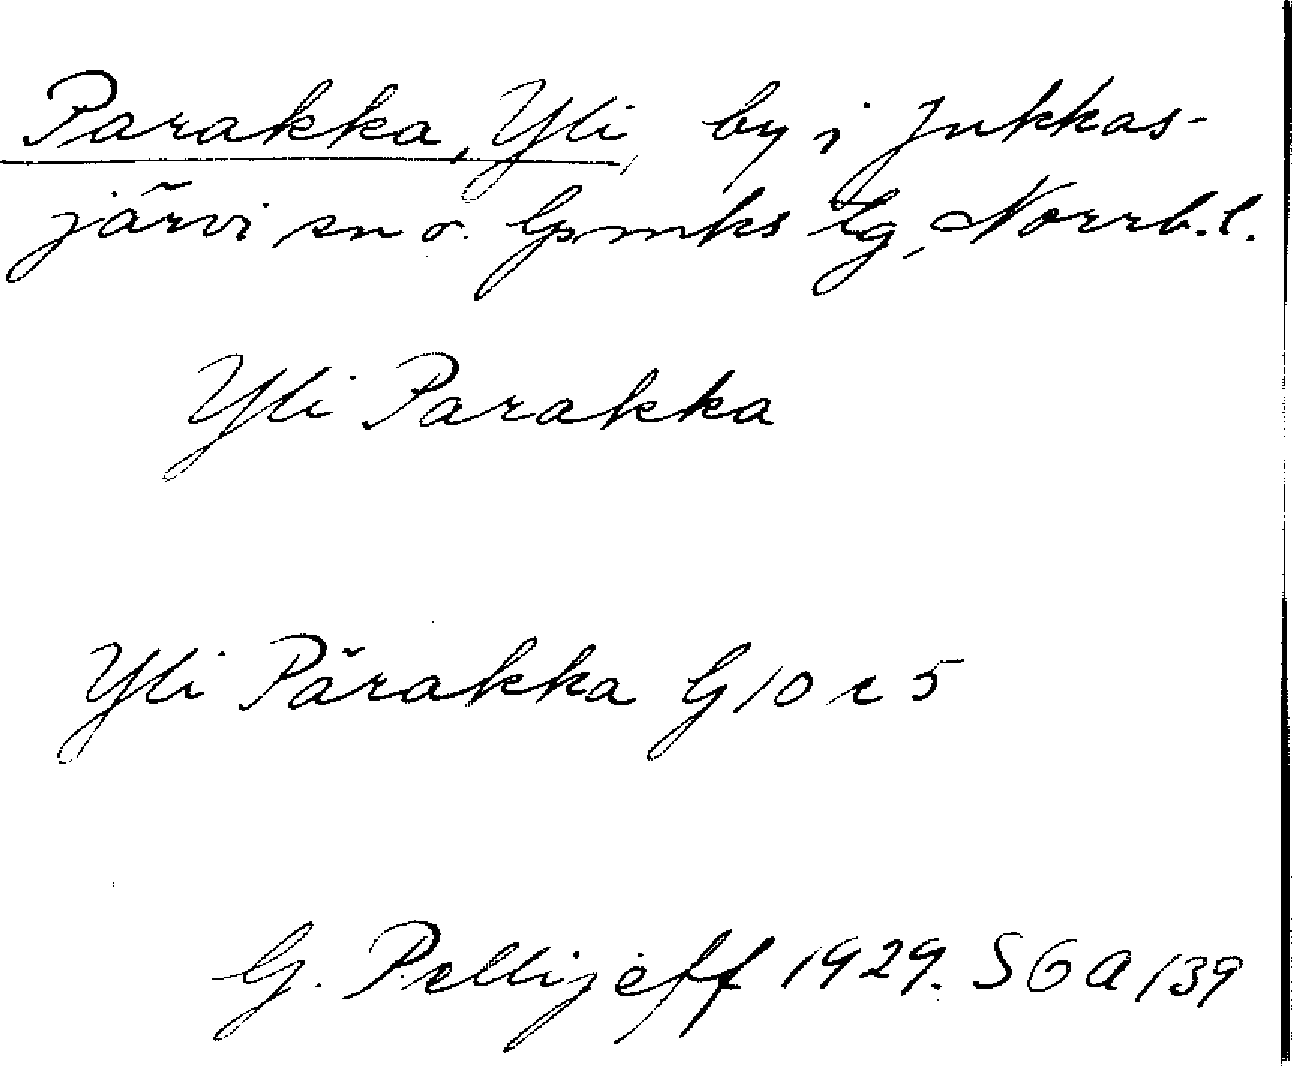 Parakka, Yli, by i Jukkas-
järvi sn o. lpmks tg, Norrb. l.
Yli Parakka
Yli Pärakka G 10 c 5
G. Pellijeff 1929. SGA 139